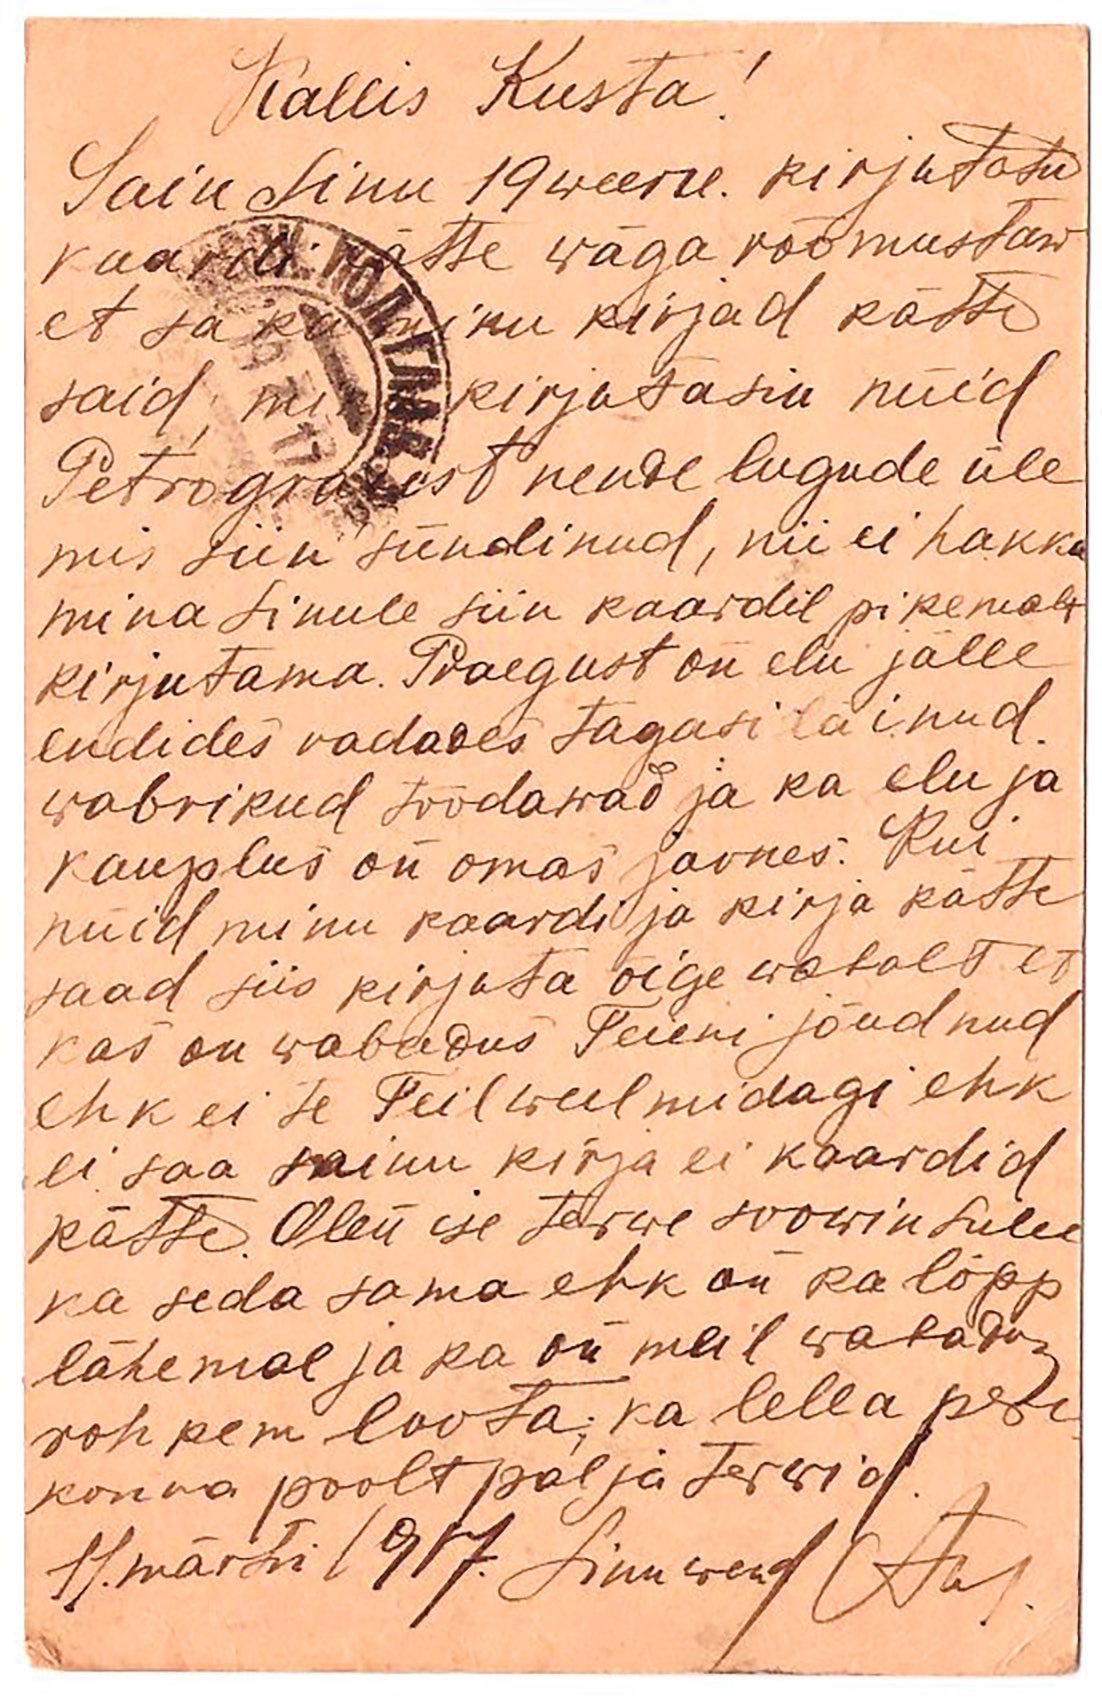 Kallis Kusta!
Sain Sinu 19 weerr. kirjutatu
kaardi kätte wäga rõõmustaw
et sa ka minu kirjad kätte
said, mina kirjutasin nüid
Petrogradist nende lugude üle
mis siin sündinud, nii ei hakka
mina Sinule siin kaardil pikemalt
kirjutama. Praegust on elu jälle
endides radades tagasi läinud.
wabrikud töödawad ja ka elu ja
kauplus on omas joones. Kui
nüid minu kaardi ja kirja kätte
saad siis kirjuta õige wabalt et
kas on wabadus Teieni jõudnud
ehk ei te Teil weel midagi ehk
ei saa minu kirja ei kaardid
kätte. Olen ise terwe soowin Sulle
ka seda sama ehk on ka lõpp
lähemal ja ka on meil wabadus
rohkem loota, ka lella pere
konna poolt palju terwid.
11. märtsi 1917. Sinu wend